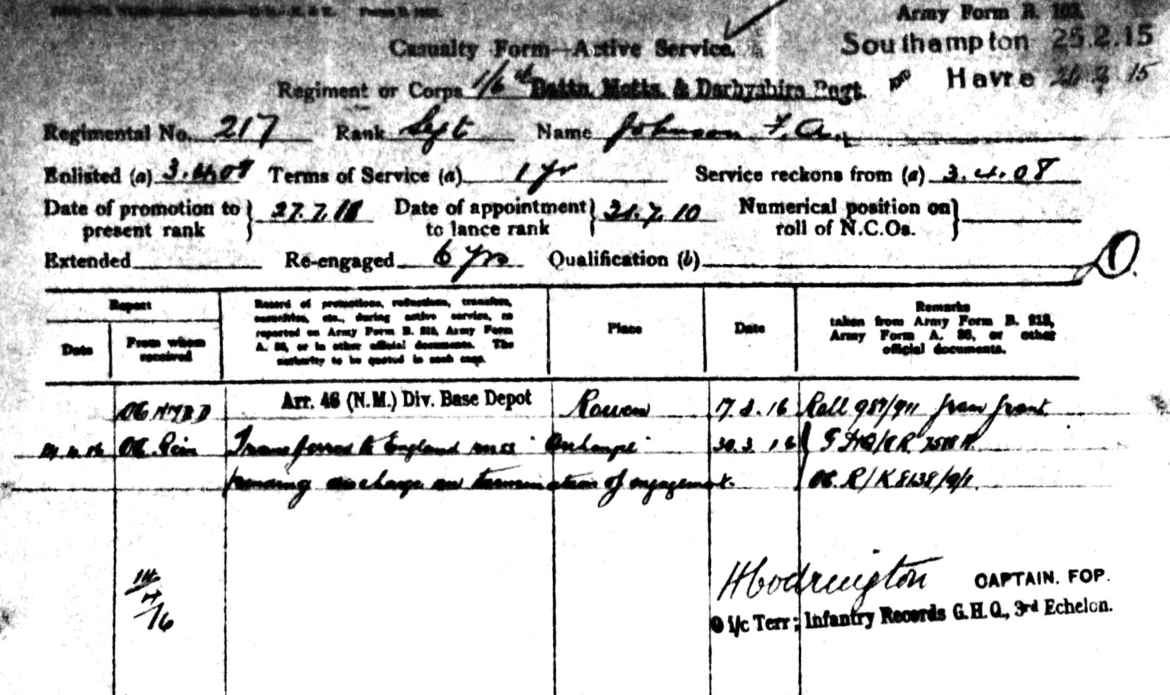 Army Form B. 103.
Casualty Form—Active Service.
Southampton 25.2.15
Regiment or Corps 1/6th Battn. Notts. & Derbyshire Regt.
Havre 26.2.15
Regimental No. 217 Rank Sgt Name Johnson F. A.
Enlisted (a) 3.4.08 Terms of Service (a) 1 yr Service reckons from (a) 3.4.08
Date of promotion to present rank 27.7. Date of appointment to lance rank 21.7.10 Numerical position on roll of N.C.Os.
Extended Re-engaged 6 yrs Qualification (b)
Report
Date
From whom received
Record of promotions, reductions, transfers, casualties, etc., during active service, as reported on Army Form B. 213, Army Form A. 36, or in other official documents. The authority to be quoted in each case.
Place
Date
Remarks
taken from Army Form B. 213, Army Form A. 36, or other official documents.
Arr. 46 (N.M.) Div. Base Depot Rouen 17.3.16 Roll from front
Transferred to England 30.3.16
pending discharge on termination of engagement.
14/4/16
H Codrington CAPTAIN. FOP.
i/c Terr; Infantry Records G.H.Q., 3rd Echelon.